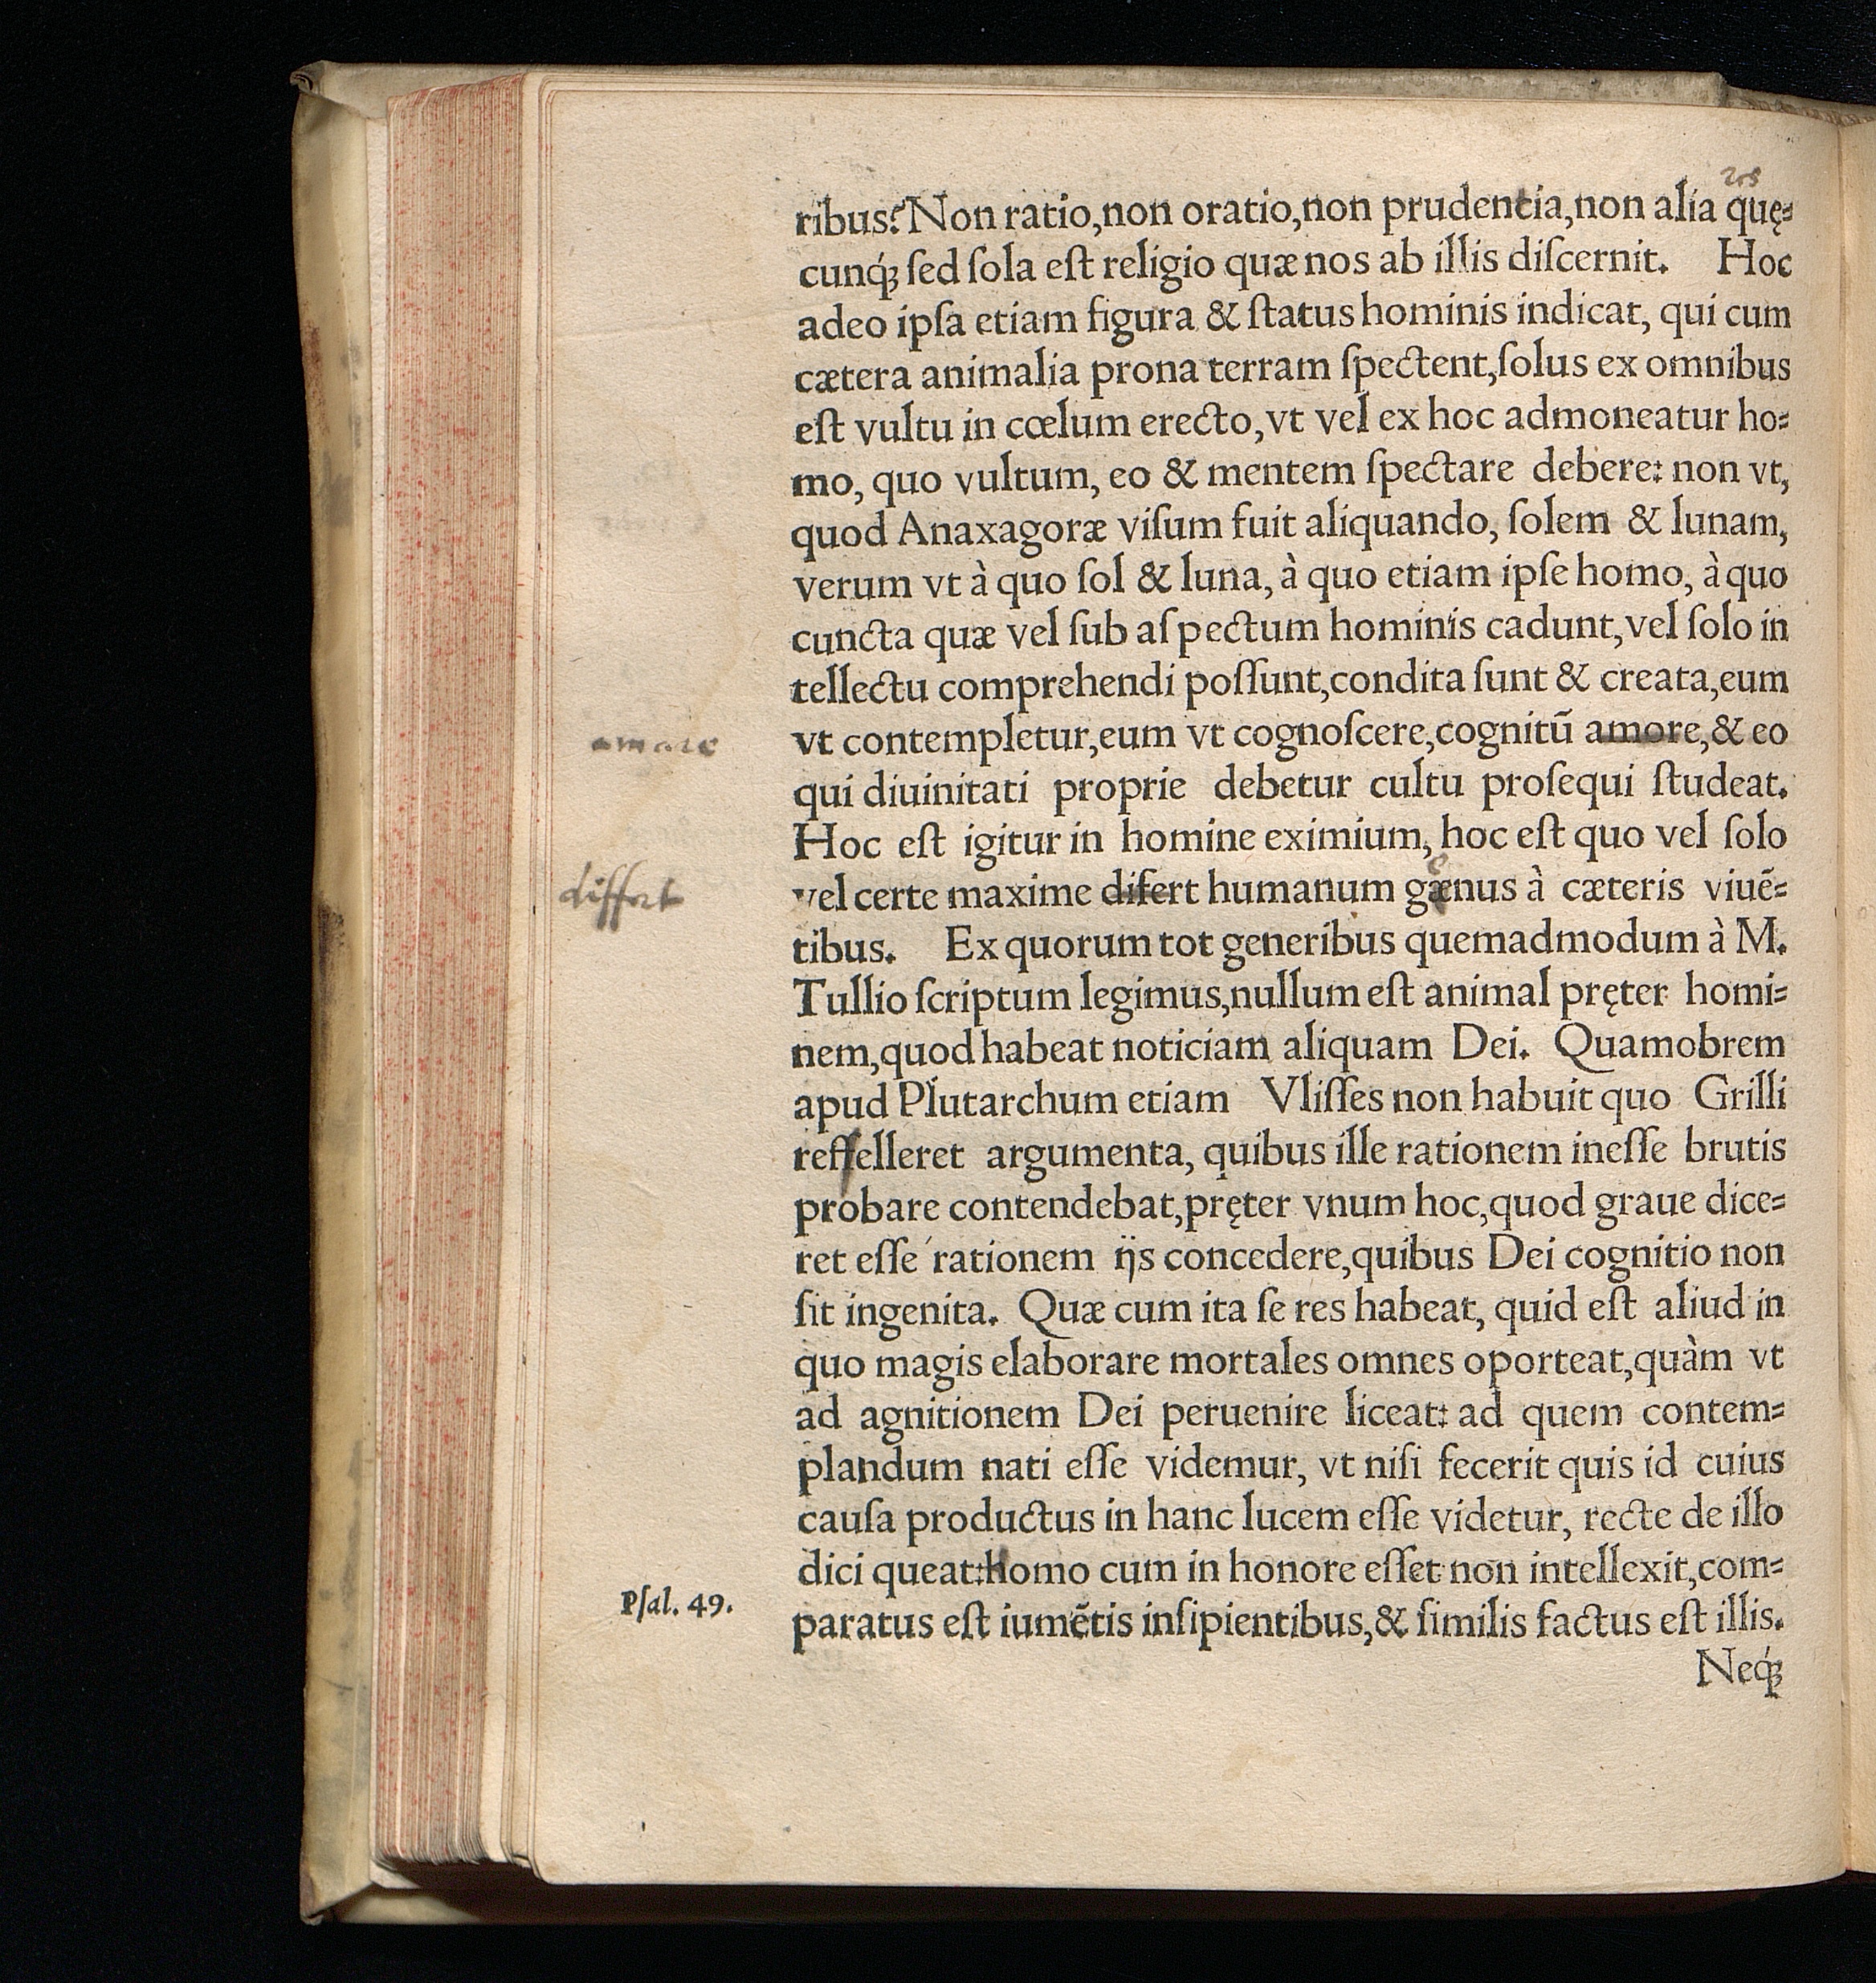 208
ribus? Non ratio, non oratio, non prudentia, non alia quę-
cunq́ꝫ sed sola est religio quæ nos ab illis discernit. Hoc
adeo ipſa etiam figura & ſtatus hominis indicat, qui cum
cætera animalia prona terram ſpectent, ſolus ex omnibus
eſt vultu in cœlum erecto, vt vel ex hoc admoneatur ho-
mo, quo vultum, eo & mentem ſpectare debere: non vt,
quod Anaxagoræ viſum fuit aliquando, ſolem & lunam,
verum vt à quo ſol & luna, à quo etiam ipſe homo, à quo
cuncta quæ vel ſub aſpectum hominis cadunt, vel ſolo in
tellectu comprehendi poſſunt, condita ſunt & creata, eum
amare
vt contempletur, eum vt cognoſcere, cognitū amore, & eo
qui diuinitati proprie debetur cultu proſequi ſtudeat.
Hoc eſt igitur in homine eximium, hoc eſt quo vel ſolo
differt
vel certe maxime difert humanum gænus à cæteris viuē-
tibus. Ex quorum tot generibus quemadmodum à M.
Tullio ſcriptum legimus, nullum eſt animal pręter homi-
nem, quod habeat noticiam aliquam Dei. Quamobrem
apud Plutarchum etiam Vliſſes non habuit quo Grilli
reffelleret argumenta, quibus ille rationem ineſſe brutis
probare contendebat, pręter vnum hoc, quod graue dice-
ret eſſe rationem ijs concedere, quibus Dei cognitio non
ſit ingenita. Quæ cum ita ſe res habeat, quid eſt aliud in
quo magis elaborare mortales omnes oporteat, quàm vt
ad agnitionem Dei peruenire liceat: ad quem contem-
plandum nati eſſe videmur, vt niſi fecerit quis id cuius
cauſa productus in hanc lucem eſſe videtur, recte de illo
dici queat: homo cum in honore eſſet non intellexit, com-
Pſal. 49.
paratus eſt iumētis inſipientibus, & ſimilis factus eſt illis.
Neq́ꝫ